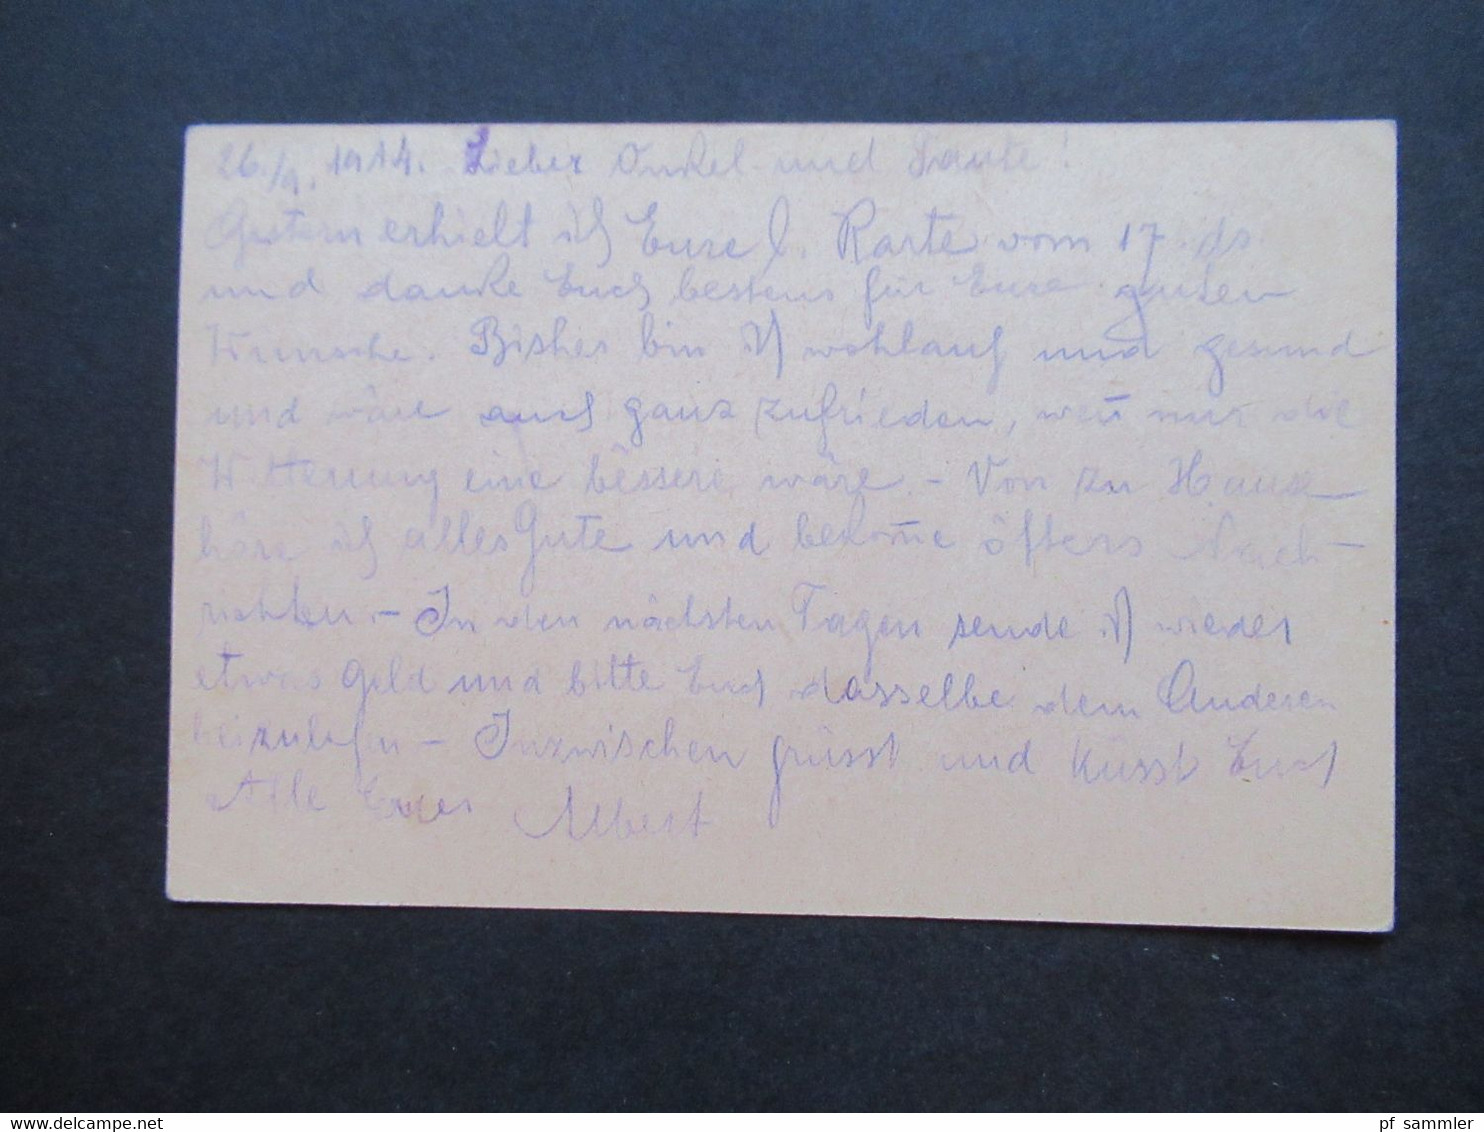 26./9. 1914. Lieber Onkel und Tante!
Gestern erhielt ich Eure l. Karte vom 17. ds
und danke Euch bestens für Eure guten
Wünsche. Bisher bin ich wohlauf und gesund
und wäre auch ganz zufrieden, wen̄ nur die
Witterung eine bessere wäre. - Von zu Hause
höre ich alles Gute und bekom̄e öfters Nach-
richten. - In den nächsten Tagen sende ich wieder
etwas Geld und bitte Euch dasselbe dem Anderen
beizulegen - Inzwischen grüsst und küsst Euch
Alle Euer Albert
www.delcampe.net
pf_sammler